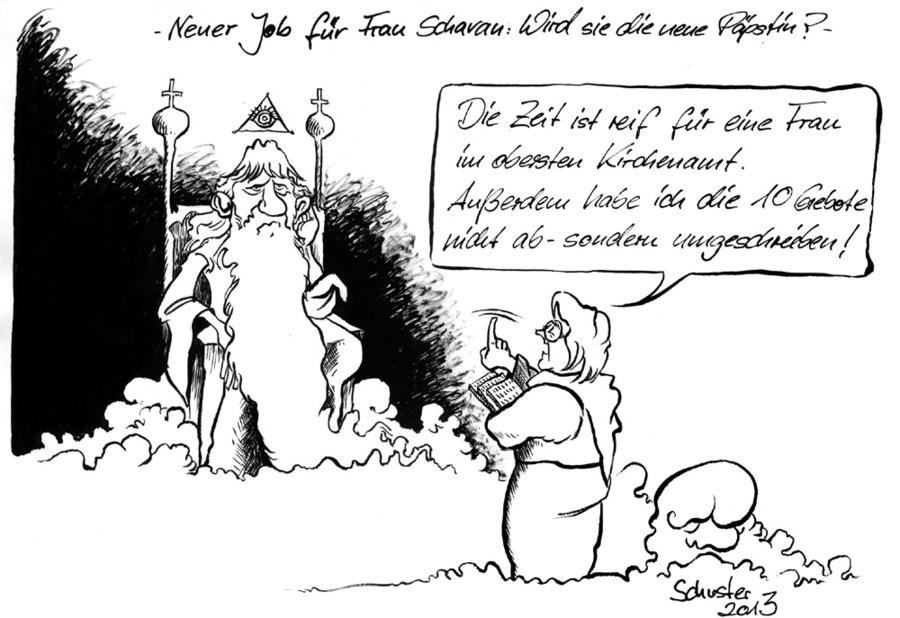 - Neuer Job für Frau Schavan: Wird sie die neue Päpstin? -
Die Zeit ist reif für eine Frau
im obersten Kirchenamt.
Außerdem habe ich die 10 Gebote
nicht ab- sondern umgeschrieben!
Schuster
2013